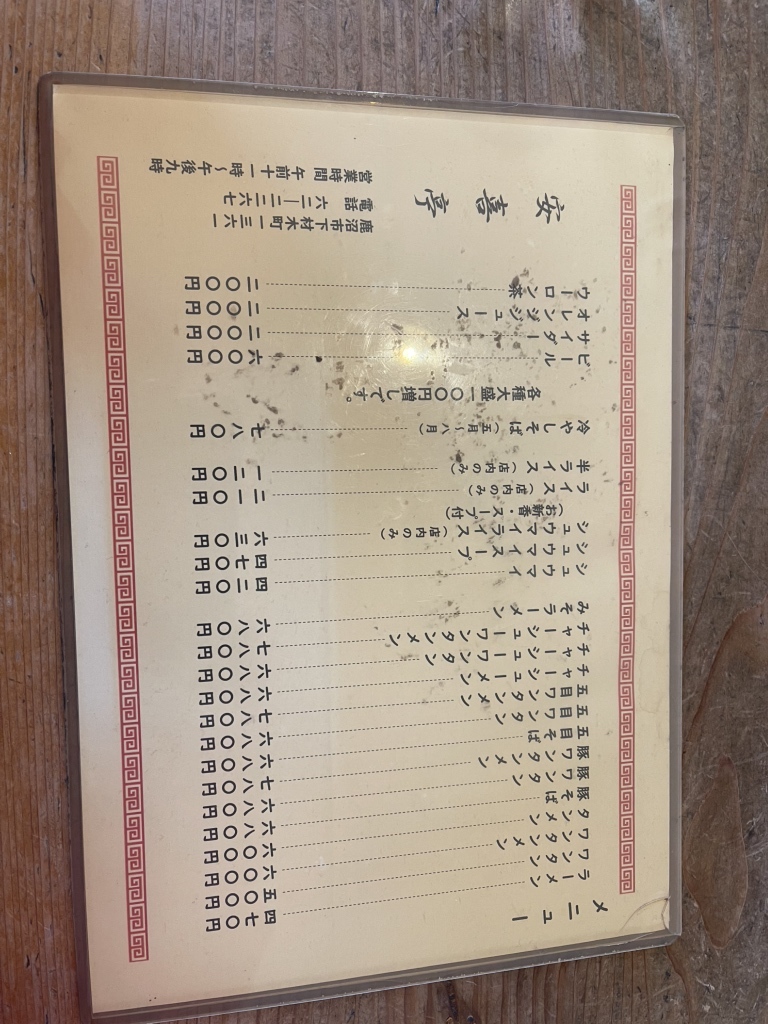 メニュー
ラーメン 四七〇円
ワンタン 五〇〇円
ワンタンメン 六〇〇円
タンメン 六〇〇円
豚そば 六八〇円
豚ワンタン 六八〇円
豚ワンタンメン 七八〇円
五目そば 六八〇円
五目ワンタン 六八〇円
五目ワンタンメン 七八〇円
チャーシューメン 六八〇円
チャーシューワンタン 六八〇円
チャーシューワンタンメン 七八〇円
みそラーメン 六八〇円
シュウマイ 四二〇円
シュウマイスープ 四七〇円
シュウマイライス（店内のみ） 六三〇円
（お新香・スープ付）
ライス（店内のみ） 二一〇円
半ライス（店内のみ） 一三〇円
冷やしそば（五月〜八月） 七八〇円
各種大盛一〇〇円増しです。
ビール 六〇〇円
サイダー 二〇〇円
オレンジジュース 二〇〇円
ウーロン茶 二〇〇円
安喜亭
鹿沼市下材木町一三六一
電話 六二―二二六七
営業時間 午前十一時〜午後九時